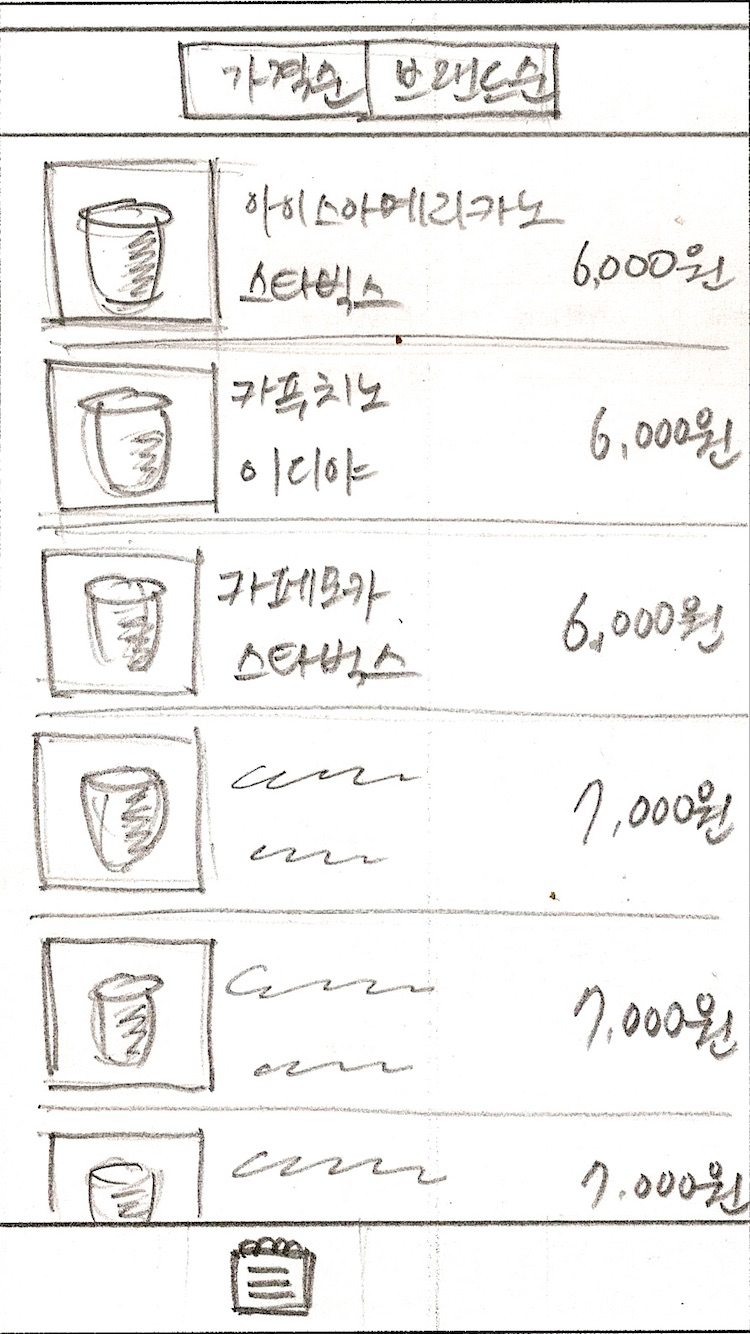 가격순 브랜드순
아이스아메리카노
스타벅스
6,000원
카푸치노
이디야
6,000원
카페모카
스타벅스
6,000원
7,000원
7,000원
7,000원